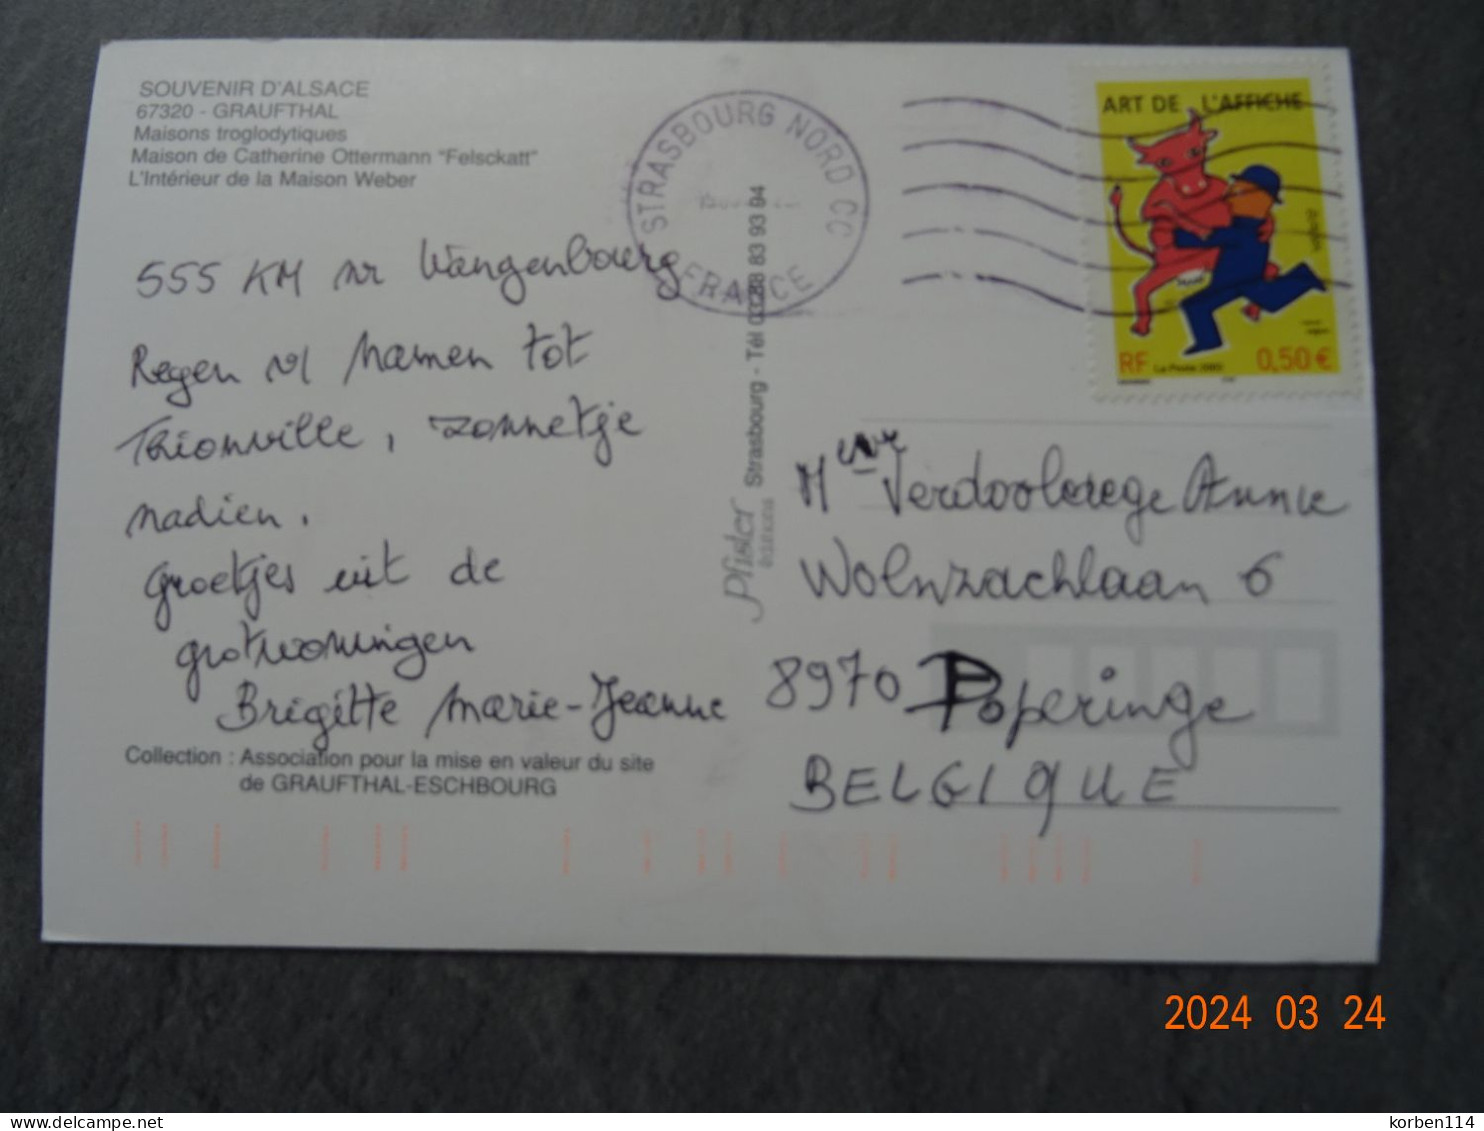 SOUVENIR D'ALSACE
67320 - GRAUFTHAL
Maisons troglodytiques
Maison de Catherine Ottermann "Felsckatt"
L'Intérieur de la Maison Weber
555 KM nr Wangenbourg
Regen v/ Namen tot
Thionville, zonnetje
nadien.
Groetjes uit de
grotwoningen
Brigitte Marie-Jeanne
Collection : Association pour la mise en valeur du site
de GRAUFTHAL-ESCHBOURG
Pfister
éditions
Strasbourg - Tél 03 88 83 93 94
STRASBOURG NORD CC
FRANCE
ART DE L'AFFICHE
RF La Poste 2002 0,50 €
Verdoolaege Annie
Wolnzachlaan 6
8970 Poperinge
BELGIQUE
2024 03 24
korben114